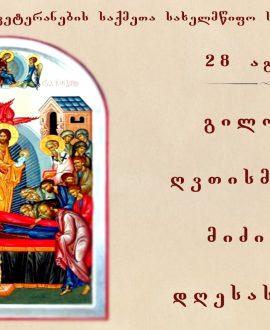 ვეტერანების საქმეთა სახელმწიფო ს
28 აგ
გილო
ღვთისმ
მიძი
დღესას